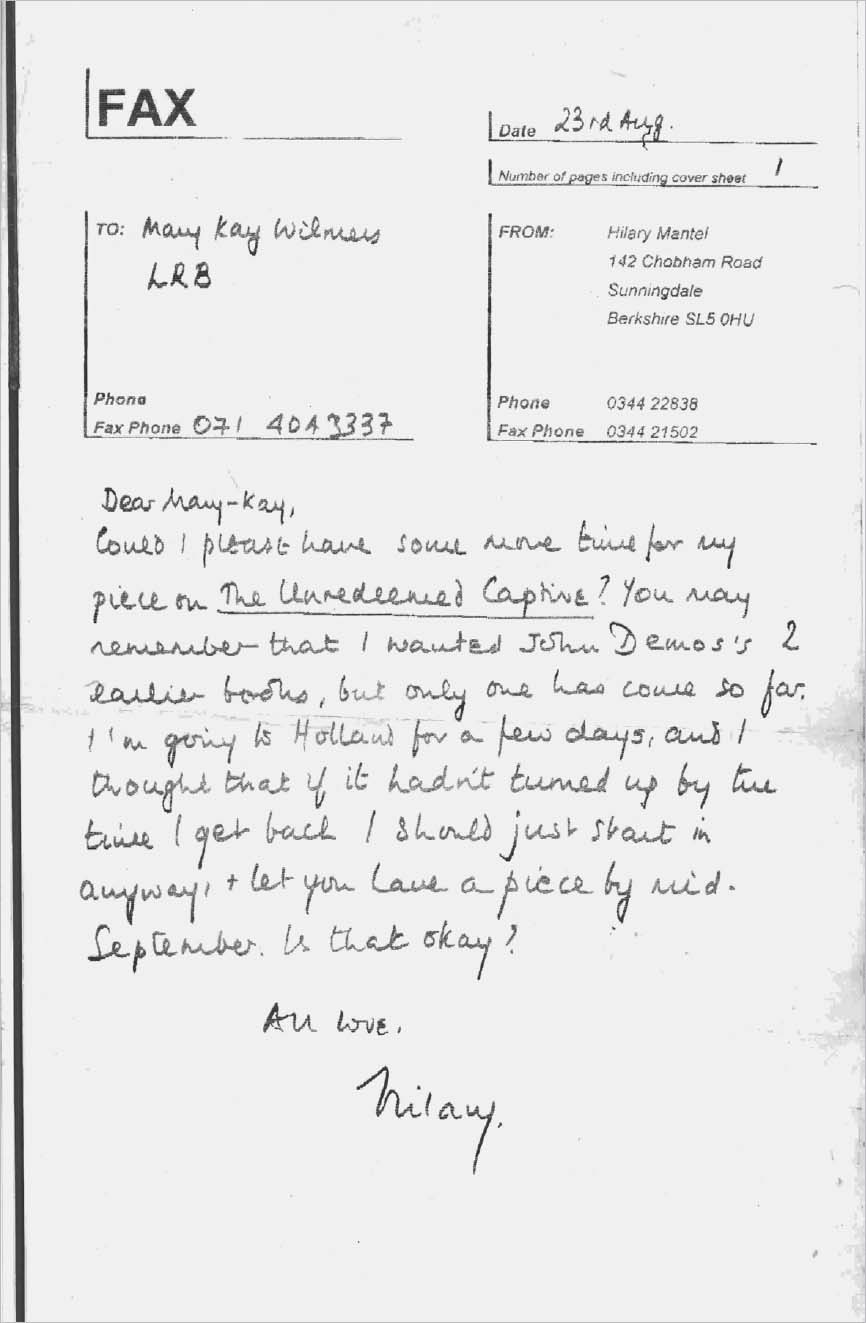 FAX
Date 23rd Aug.
Number of pages including cover sheet 1
TO: Mary Kay Wilmers
LRB
Phone
Fax Phone 071 404 3337
FROM: Hilary Mantel
142 Chobham Road
Sunningdale
Berkshire SL5 0HU
Phone 0344 22838
Fax Phone 0344 21502
Dear Mary-Kay,
Could I please have some more time for my
piece on The Unredeemed Captive? You may
remember that I wanted John Demos's 2
earlier books, but only one has come so far.
I'm going to Holland for a few days, and I
thought that if it hadn't turned up by the
time I get back I should just start in
anyway, + let you have a piece by mid-
September. Is that okay?
All love,
Hilary.